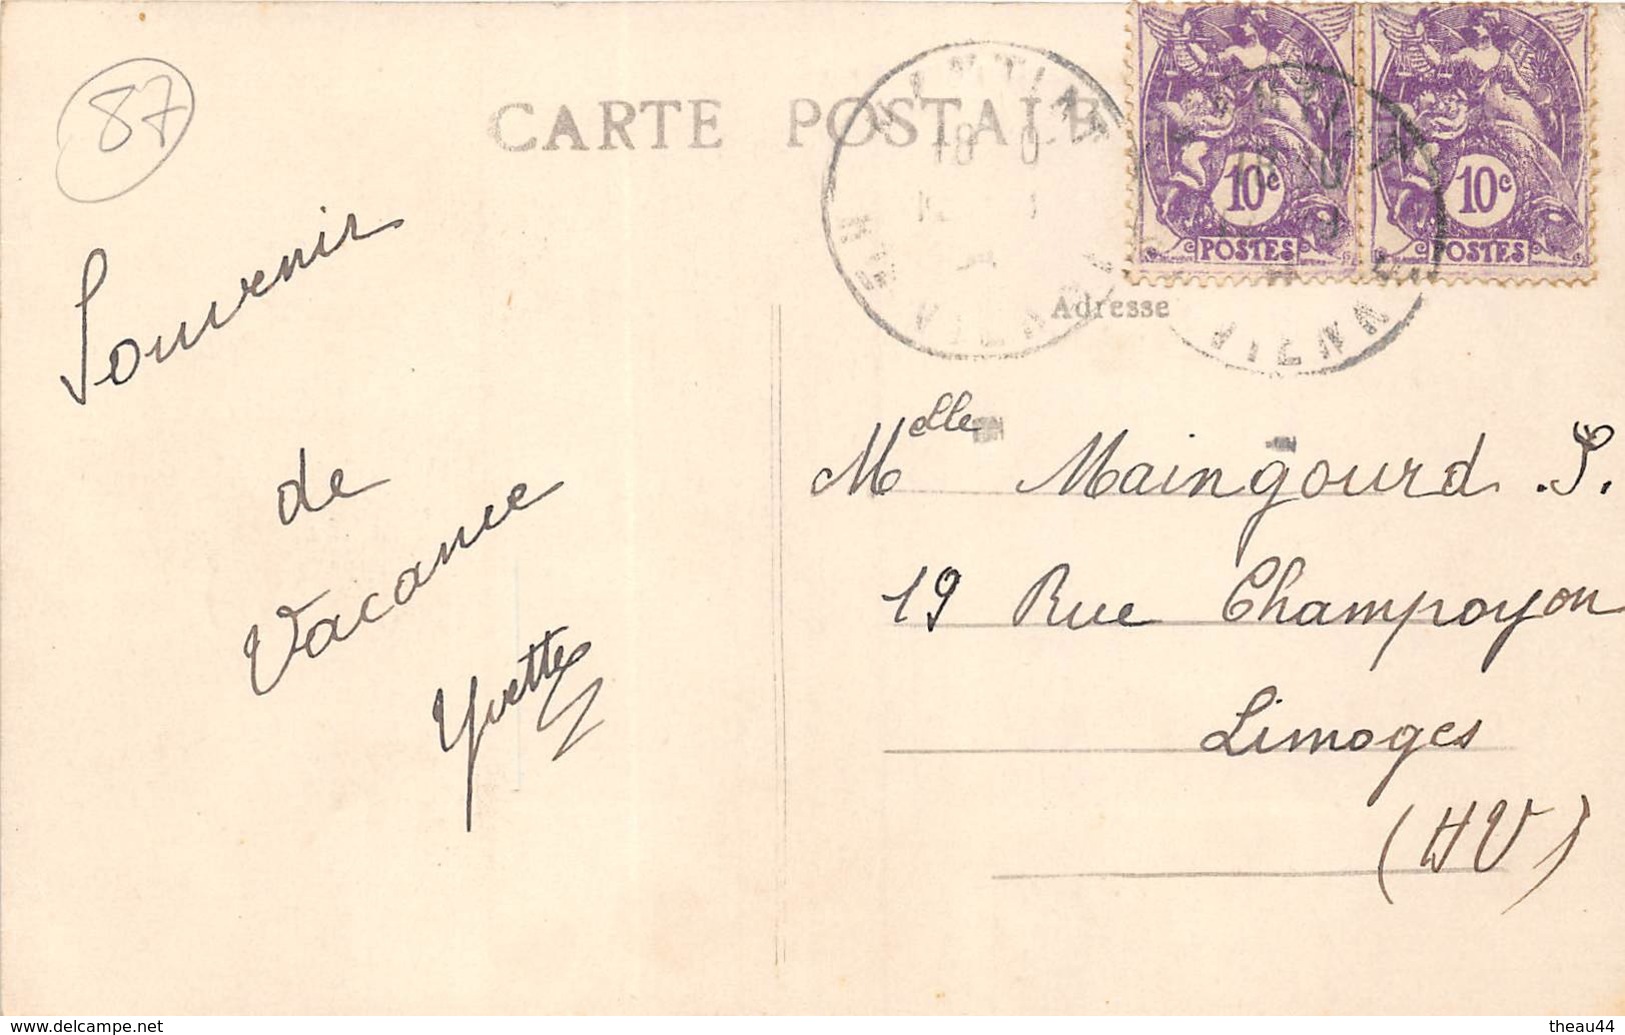 87
CARTE POSTALE
10c
POSTES
10c
POSTES
Adresse
Souvenir
de
Vacance
Yvette
Melle Maingourd .S.
19 Rue Champoyon
Limoges
(HV)
www.delcampe.net
theau44